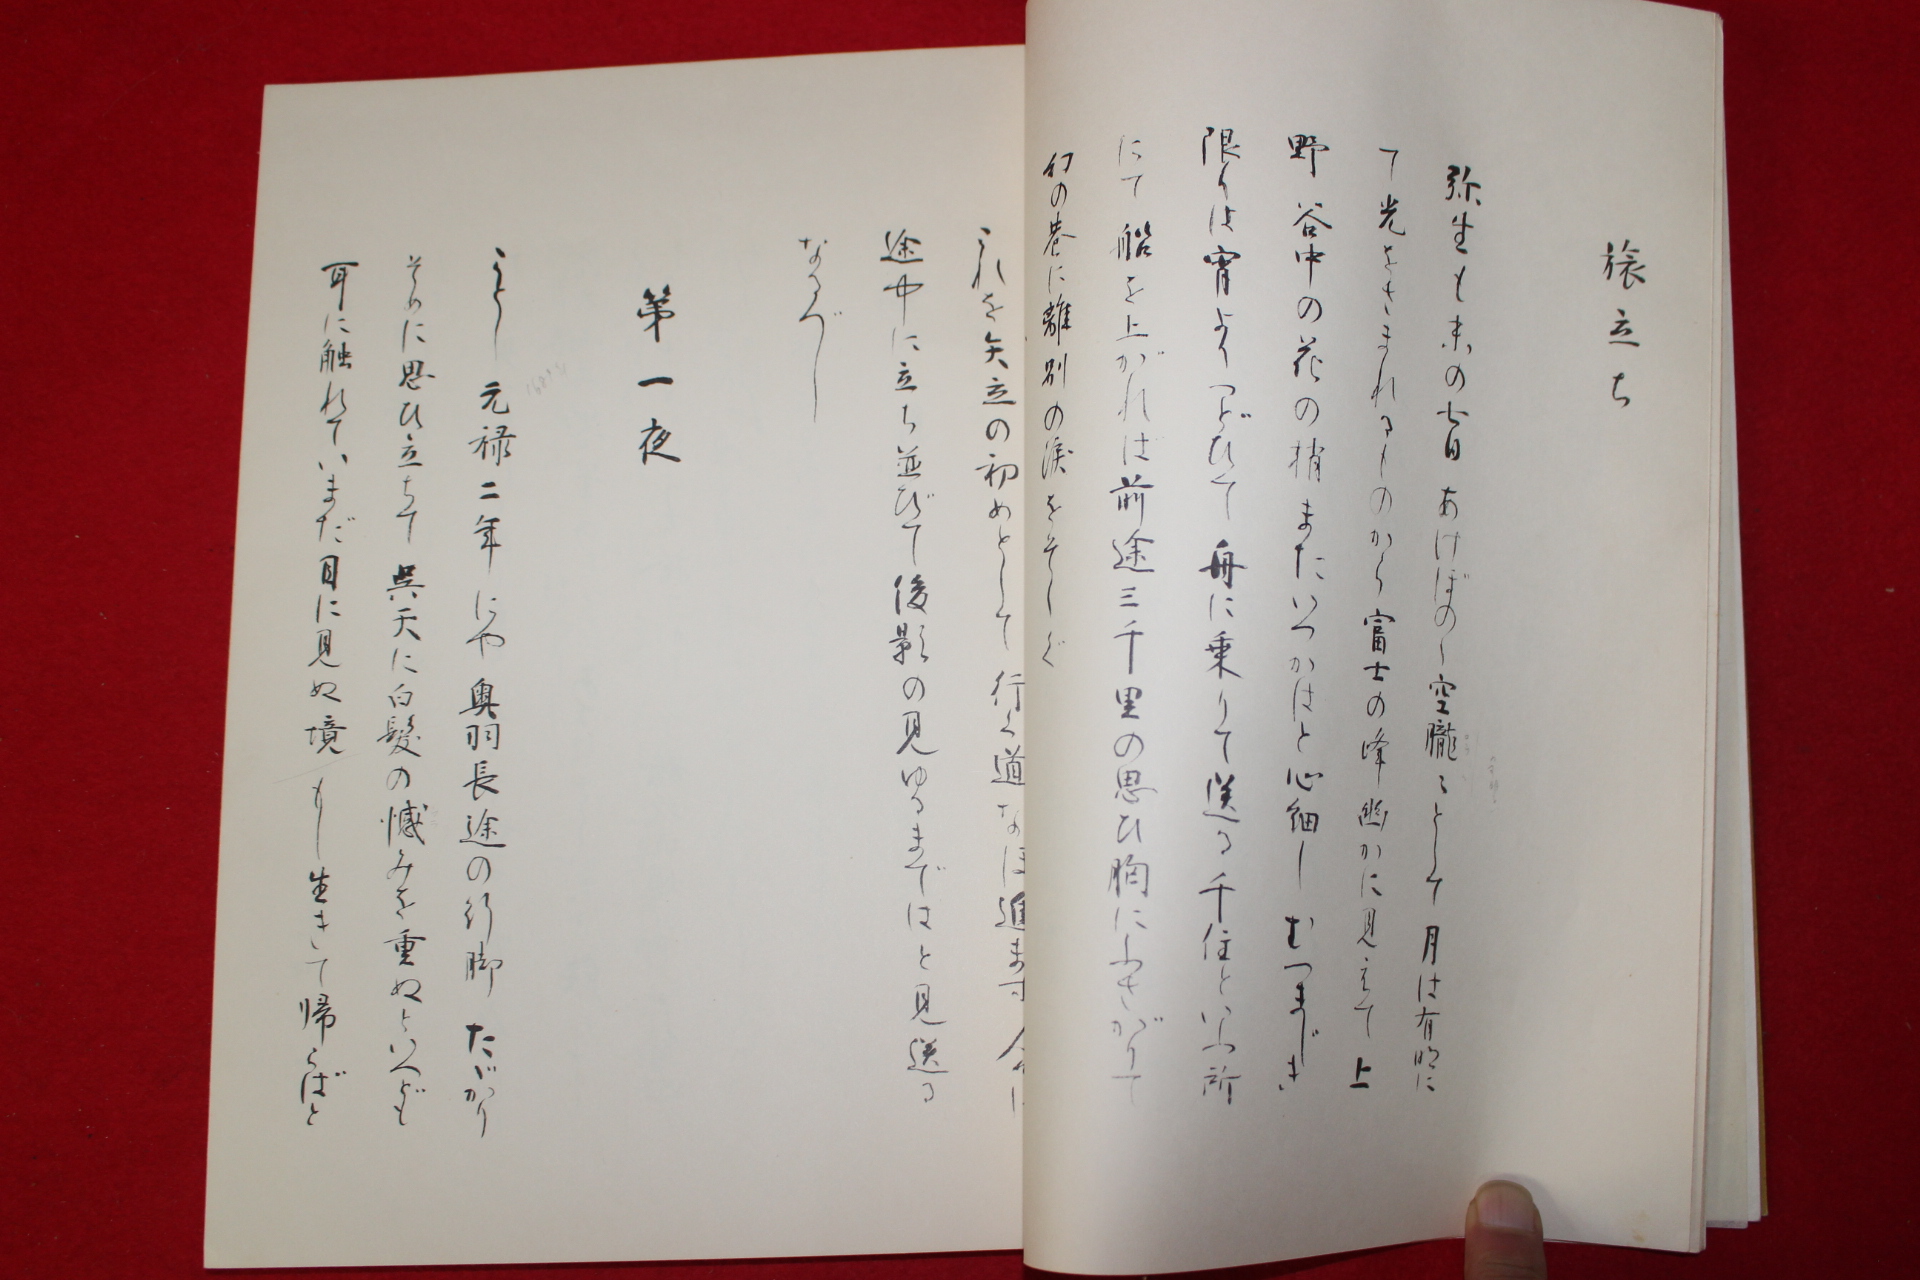 旅立ち
弥生も末の七日 あけぼのゝ空朧々として 月は有明に
て光をさまれるものから 富士の峰幽かに見えて 上
野 谷中の花の梢 またいつかはと心細し むつまじき
限りは宵よりつどひて 舟に乗りて送る 千住といふ所
にて 船を上がれば 前途三千里の思ひ胸にふさがりて
幻の巷に離別の涙をそゝぐ
これを矢立の初めとして 行く道なほ進まず 人々は
途中に立ち並びて 後影の見ゆるまではと見送る
なるべし
第一夜
ことし 元禄二年にや 奥羽長途の行脚 たゞかり
そめに思ひ立ちて 呉天に白髪の憾みを重ぬといへども
耳に触れていまだ目に見ぬ境 もし生きて帰らばと